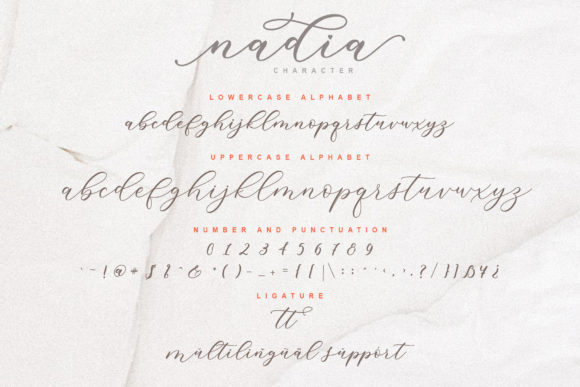 nadia
CHARACTER
LOWERCASE ALPHABET
abcdefghijklmnopqrstuvwxyz
UPPERCASE ALPHABET
abcdefghijklmnopqrstuvwxyz
NUMBER AND PUNCTUATION
0 1 2 3 4 5 6 7 8 9
LIGATURE
tt
multilingual support